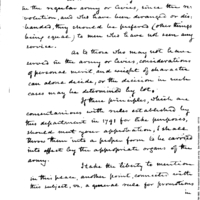 in the regular army or levies, since the re-
volution, and who have been deranged or dis-
banded, they should be preferred (other things
being equal) to men who have not seen any
service.
As to those who may not have
served in the army or levies, considerations
of personal merit and weight of character
can alone decide, or the decision in such
cases may be determined by lot,
If these principles, which are
concentaneous with rules established by
this department in 1791 for like purposes,
should meet your approbation, I shall
throw them into a proper form to be carried
into effect by the appropriate organs of the
army.
I take the liberty to mention
in this place, another point, connected with
this subject, viz. a general rule for promotions
in